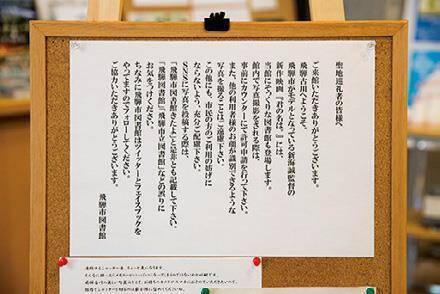 聖地巡礼者の皆様へ
ご来館いただきありがとうございます。
飛騨古川へようこそ。
飛騨市がモデルとなっている新海誠監督の
新作映画『君の名は。』には、
当館にそっくりな図書館も登場します。
館内で写真撮影をされる際は、
事前にカウンターにて許可申請を行って下さい。
また、他の利用者様のお顔が識別できるような
写真を撮ることはご遠慮下さい。
この他にも、市民の方のご利用の妨げに
ならないよう、充分ご配慮下さい。
SNSに写真を投稿する際は、
「飛騨市図書館きたよ」と是非とも記載して下さい。
「飛騨図書館」、「飛騨市立図書館」などの誤りに
お気をつけください。
ちなみに飛騨市図書館はツイッターとフェイスブックを
やってますのでフォローしてください。
ご協力いただきありがとうございます。
飛騨市図書館